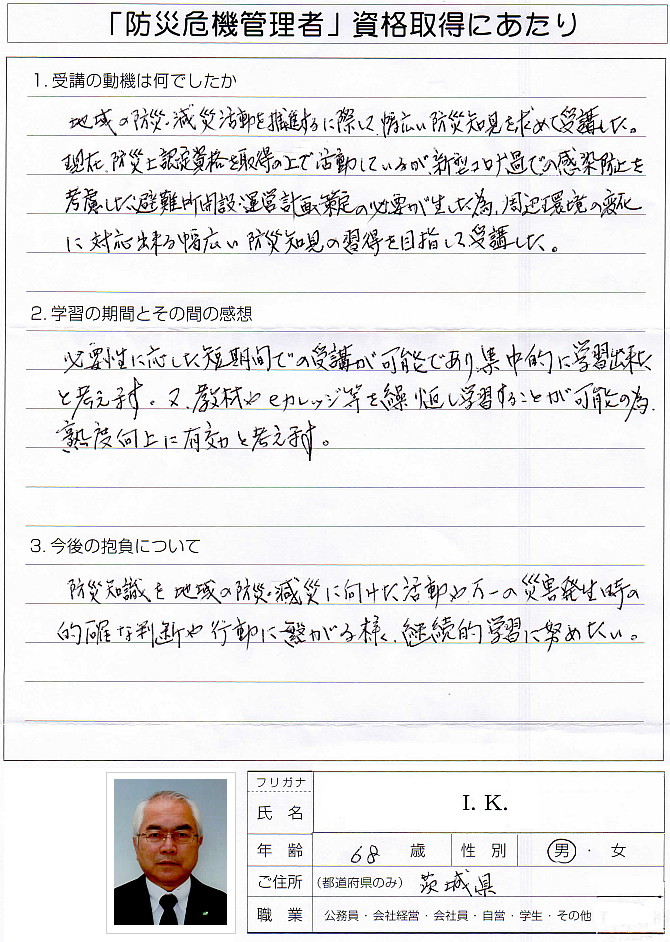 「防災危機管理者」資格取得にあたり
1. 受講の動機は何でしたか
地域の防災・減災活動を推進するに際して、幅広い防災知見を求めて受講した。
現在、防災士認定資格を取得の上で活動しているが、新型コロナ過での感染防止を
考慮した避難所開設・運営計画策定の必要が生した為、周辺環境の変化
に対応出来る幅広い防災知見の習得を目指して受講した。
2. 学習の期間とその間の感想
必要性に応した短期間での受講が可能であり、集中的に学習出来た
と考えます。又、教材やeカレッジ等を繰り返し学習することが可能の為、
熟度向上に有効と考えます。
3. 今後の抱負について
防災知識を地域の防災・減災に向けた活動や万一の災害発生時の
的確な判断や行動に繋がる様、継続的学習に努めたい。
フリガナ
氏 名 I. K.
年 齢 68 歳 性 別 男 ・ 女
ご住所 (都道府県のみ) 茨城県
職 業 公務員・会社経営・会社員・自営・学生・その他